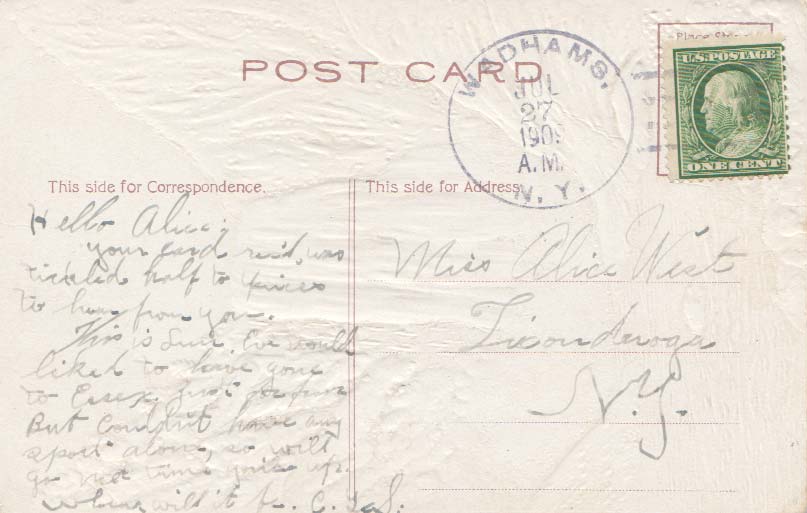 POST CARD
Place Stamp
WADHAMS,
JUL
27
1909
A.M.
N. Y.
U.S. POSTAGE
ONE CENT
This side for Correspondence.
This side for Address.
Hello Alice:
your card rec'd, was
tickled half to pieces
to hear from you.
This is Sun. Eve would
liked to have gone
to Essex. Just for fun
But Couldn't have any
sport alone, so will
go next time you're up.
When will it be. C.
Miss Alice West
Ticonderoga
N.Y.